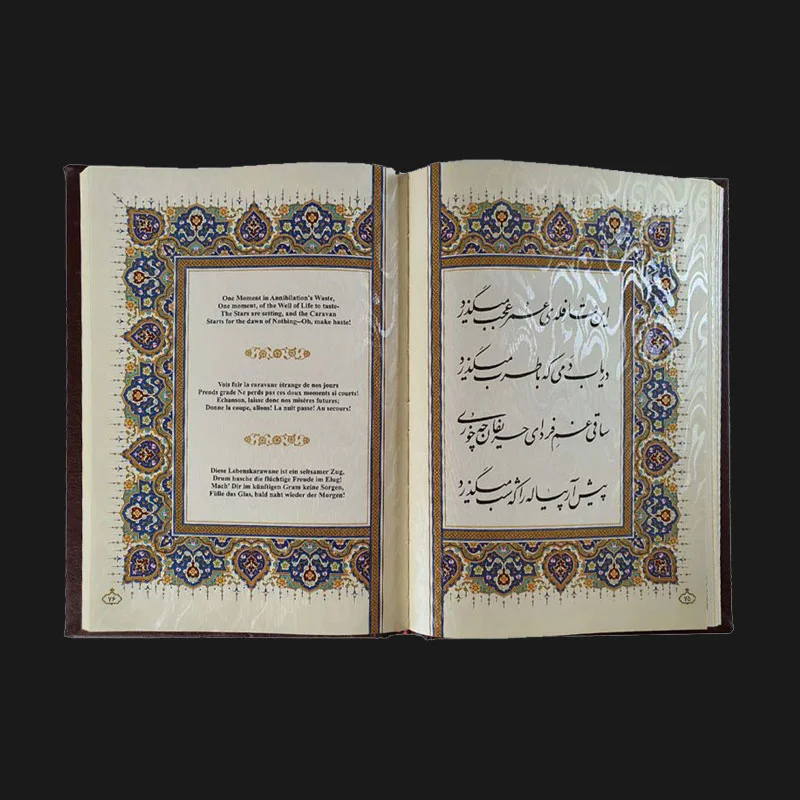 این قافله عمر عجب میگذرد
دریاب دمی که با طرب میگذرد
ساقی غم فردای حریفان چه خوری
پیش آر پیاله را که شب میگذرد
۷۵
One Moment in Annihilation's Waste,
One moment, of the Well of Life to taste-
The Stars are setting, and the Caravan
Starts for the dawn of Nothing--Oh, make haste!
Vois fuir la caravane étrange de nos jours
Prends grade Ne perds pas ces doux moments si courts!
Echanson, laisse donc nos misères futures;
Donne la coupe, allons! La nuit passe! Au secours!
Diese Lebenskarawane ist ein seltsamer Zug,
Drum hasche die flüchtige Freude im Elug!
Mach' Dir im künftigen Gram keine Sorgen,
Fülle das Glas, bald naht wieder der Morgen!
۷۶